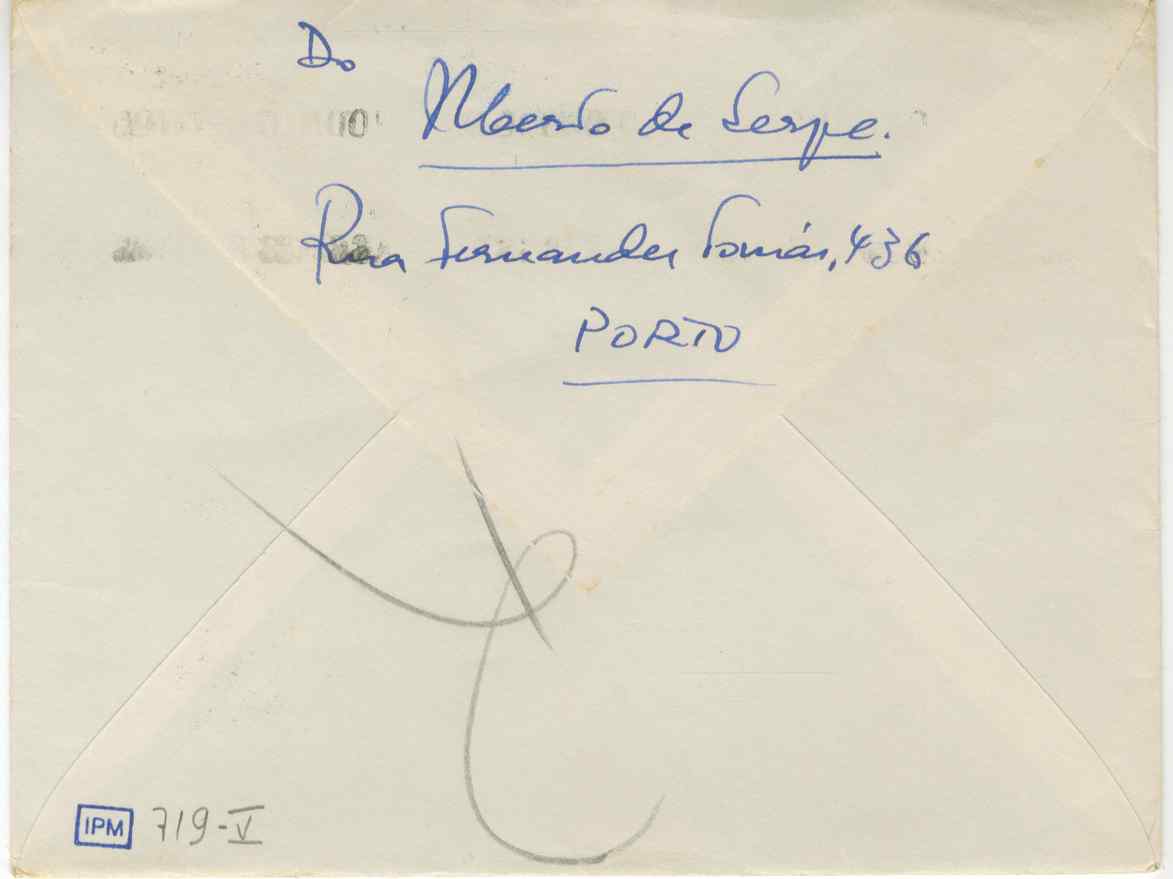 Do
Alberto de Serpa.
Rua Fernandes Tomás, 436
PORTO
IPM 719-V